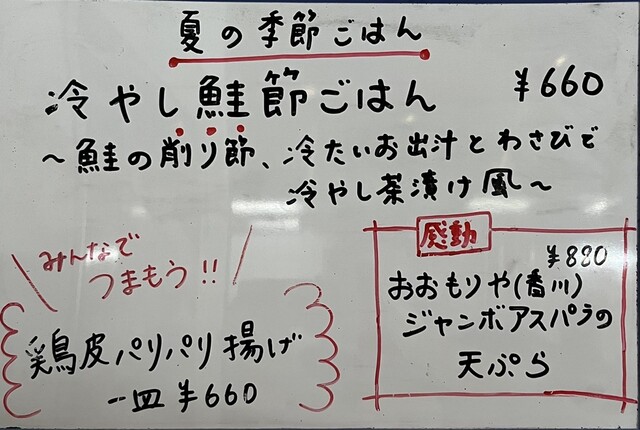 夏の季節ごはん
冷やし鮭節ごはん ¥660
～鮭の削り節、冷たいお出汁とわさびで
冷やし茶漬け風～
みんなで
つまもう!!
鶏皮パリパリ揚げ
一皿 ¥660
感動
¥880
おおもりや(香川)
ジャンボアスパラの
天ぷら